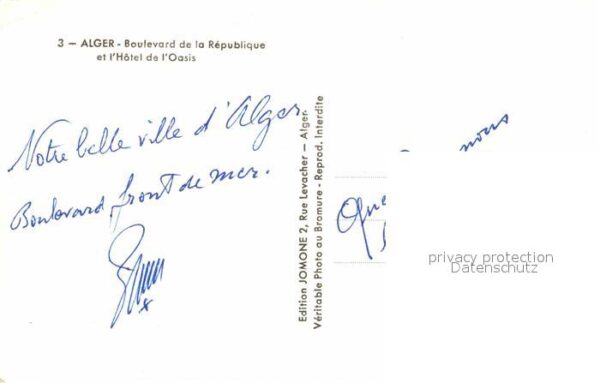 3 — ALGER - Boulevard de la République
et l'Hôtel de l'Oasis
Notre belle ville d'Alger.
Boulevard front de mer.
Edition JOMONE 2, Rue Levacher — Alger.
Véritable Photo au Bromure - Reprod. Interdite
nous
Que
privacy protection
Datenschutz